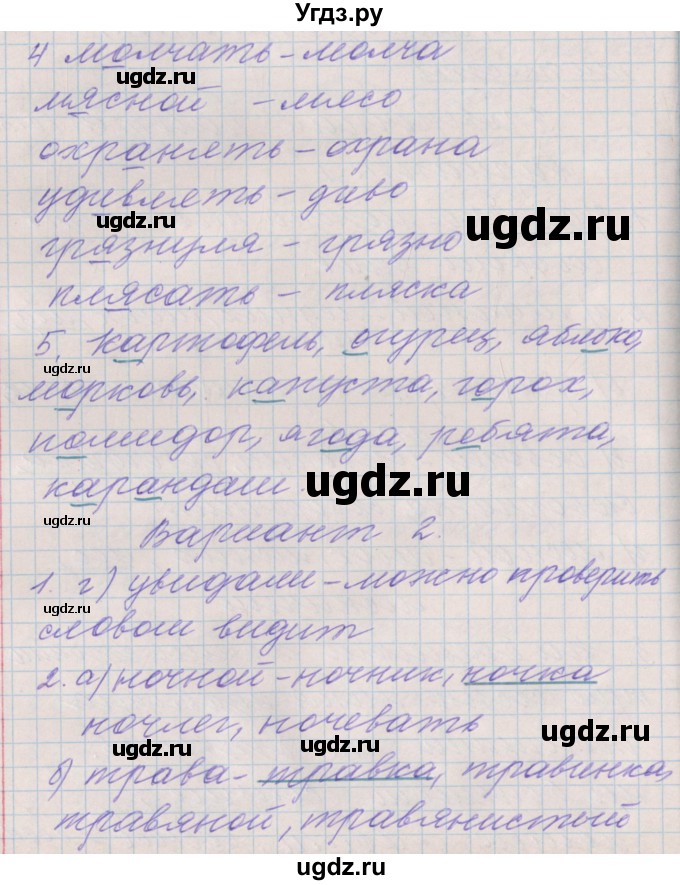 Угдз.ру
4 молчать – молча
ugdz.ru
мясной – мясо
охранять – охрана
ugdz.ru
удивлять – диво
ugdz.ru
ugdz.ru
грязнуля – грязно
плясать – пляска
5. Картофель, огурец, яблоко,
ugdz.ru
морковь, капуста, горох,
помидор, ягода, ребята,
ugdz.ru
карандаш.
ugdz.ru
Вариант 2.
1. г) увидали – можно проверить
ugdz.ru
словом видит
2. а) ночной – ночник, ночка
ugdz.ru
ночлег, ночевать
ugdz.ru
ugdz.ru
б) трава – травка, травинка,
травяной, травянистый
ugdz.ru